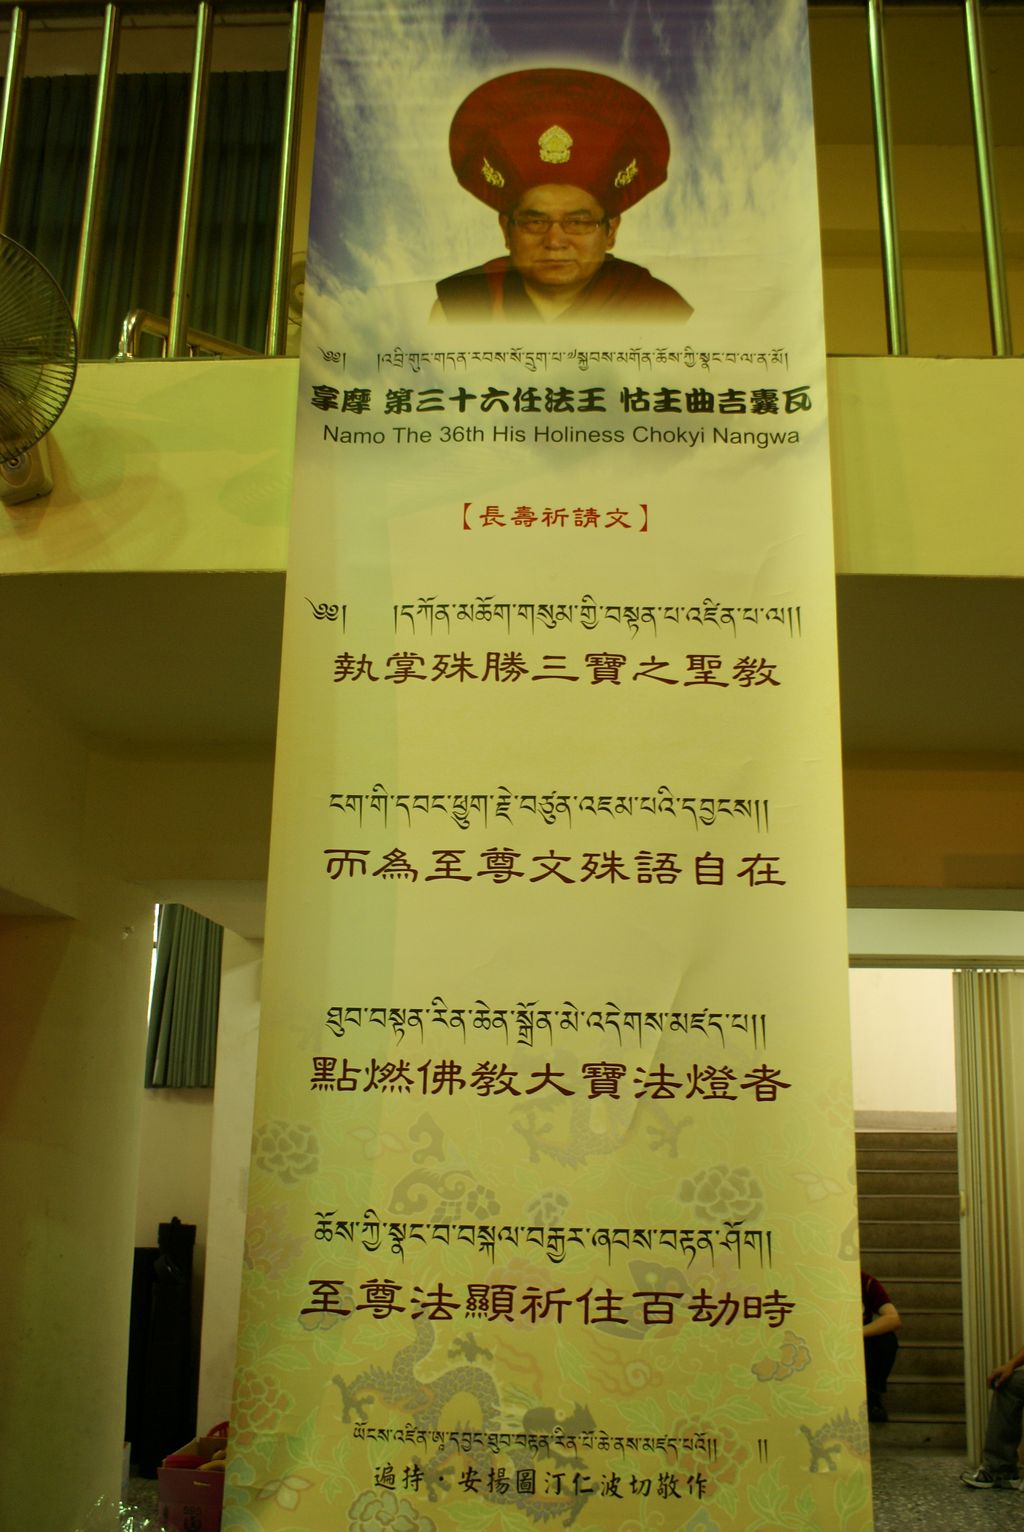 ༄༅། །འབྲི་གུང་གདན་རབས་སོ་དྲུག་པ་༧སྐྱབས་མགོན་ཆོས་ཀྱི་སྣང་བ་ལ་ན་མོ།
拿摩 第三十六任法王 怙主曲吉囊瓦
Namo The 36th His Holiness Chokyi Nangwa
【長壽祈請文】
༄༅། །དཀོན་མཆོག་གསུམ་གྱི་བསྟན་པ་འཛིན་པ་ལ།།
執掌殊勝三寶之聖教
ངག་གི་དབང་ཕྱུག་རྗེ་བཙུན་འཇམ་པའི་དབྱངས།།
而為至尊文殊語自在
ཐུབ་བསྟན་རིན་ཆེན་སྒྲོན་མེ་འདེགས་མཛད་པ།།
點燃佛教大寶法燈者
ཆོས་ཀྱི་སྣང་བ་བསྐལ་བརྒྱར་ཞབས་བརྟན་ཤོག།
至尊法顯祈住百劫時
ཡོངས་འཛིན་ཨཱ་དབྱང་ཐུབ་བསྟན་རིན་པོ་ཆེ་ནས་མཛད་པའོ།། །།
遍持・安揚圖汀仁波切敬作